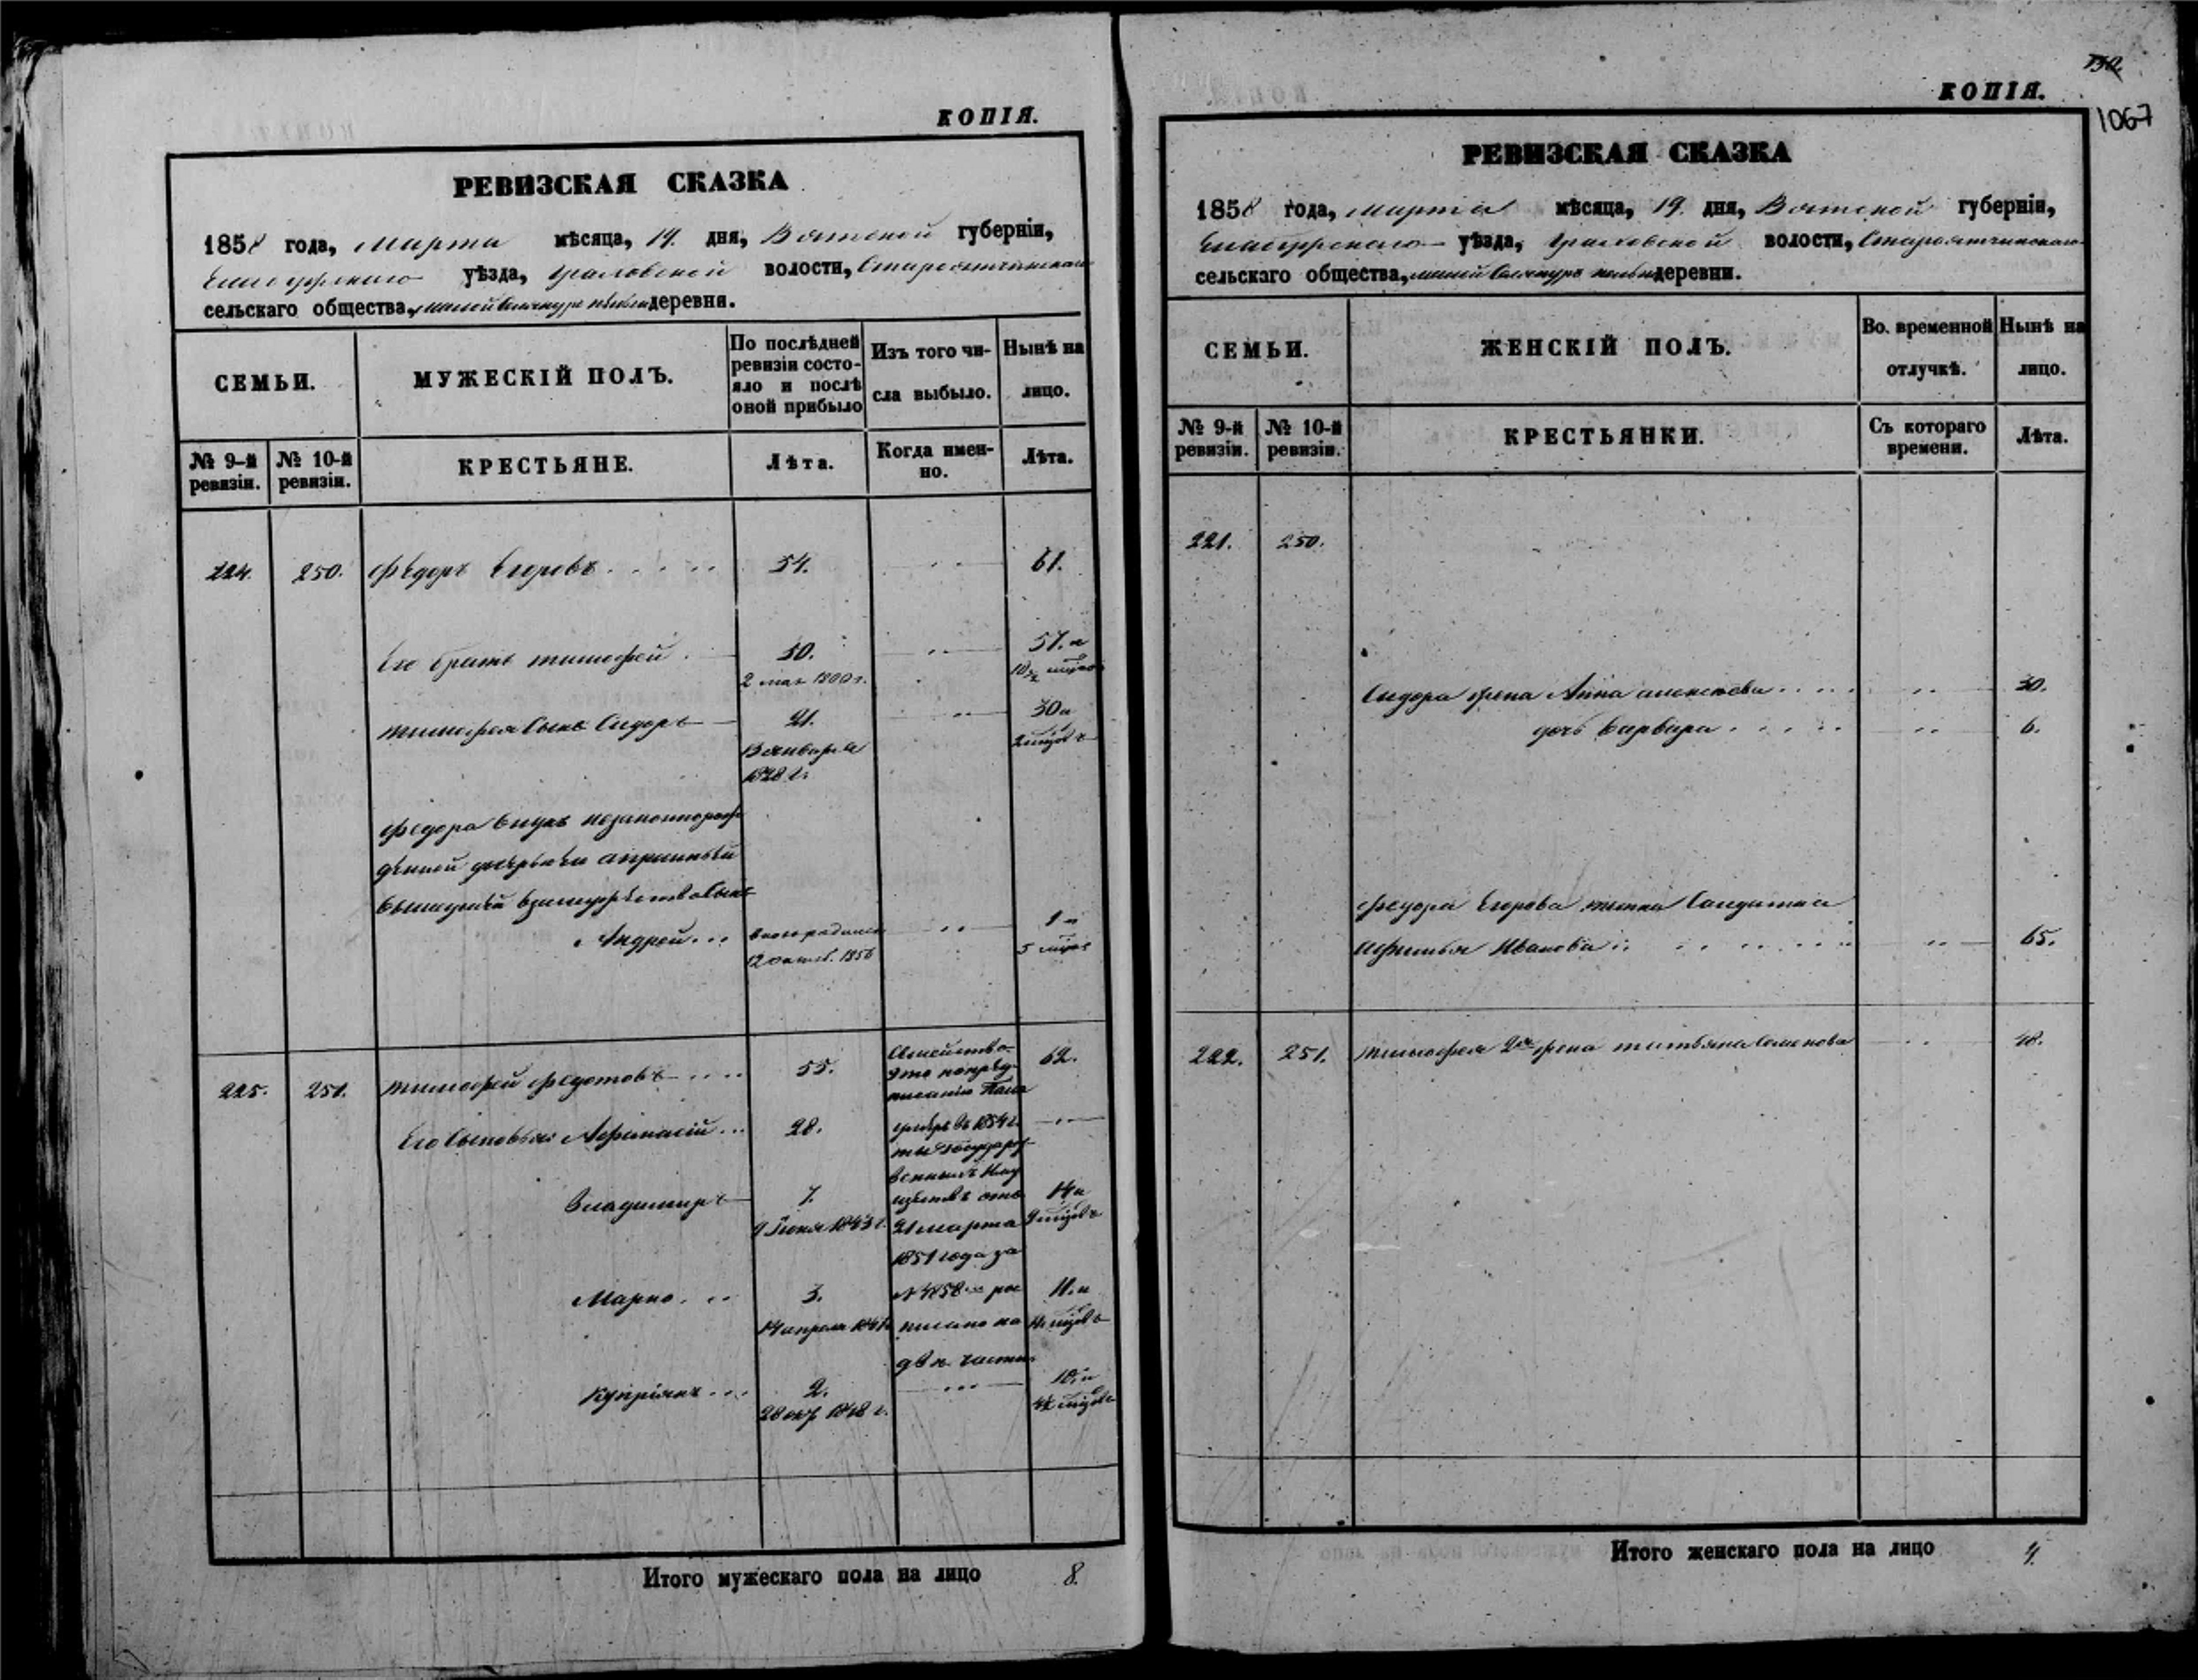 КОПІЯ.
РЕВИЗСКАЯ СКАЗКА
1858 года, марта мѣсяца, 19. дня, Вятской губерніи,
Елабужскаго уѣзда, Граховской волости,
сельскаго общества, малой деревни.
СЕМЬИ.
МУЖЕСКІЙ ПОЛЪ.
По послѣдней ревизіи состо-
яло и послѣ оной прибыло
Изъ того чи-
сла выбыло.
Нынѣ на
лицо.
№ 9-й ревизіи.
№ 10-й ревизіи.
КРЕСТЬЯНЕ.
Лѣта.
Когда имен-
но.
Лѣта.
224. 250. Ѳедоръ Егоровъ 54. 61.
Его братъ тимофей 50. 57. и
2 мая 1800 г. 10½
тимофея Сынъ Сидоръ 21. 30 и
13 января 2
1828 г.
Федора внукъ незаконнорож
денной дочерью его
Сынъ
Андрей 1 и
12 октяб. 1856 5
225. 251. тимофей федотовъ 55. Семейство 62.
это по пред-
писанію Пала
Его Сыновья: Афанасій 28.
ты Государст
венныхъ Иму
Владимиръ 7. ществъ отъ 14 и
9 Іюня 1843 г. 21 марта 9
1851 года за
Марко 3. № 4858 рос 11. и
14 апреля писано на 11
двѣ части
Купріянъ 2. 10. и
28 окт 1848 г. 4½
Итого мужескаго пола на лицо 8.
150.
КОПІЯ.
1067
РЕВИЗСКАЯ СКАЗКА
1858 года, марта мѣсяца, 19. дня, Вятской губерніи,
Елабужскаго уѣзда, Граховской волости,
сельскаго общества, малой деревни.
СЕМЬИ.
ЖЕНСКІЙ ПОЛЪ.
Во. временной
отлучкѣ.
Нынѣ на
лицо.
№ 9-й ревизіи.
№ 10-й ревизіи.
КРЕСТЬЯНКИ.
Съ котораго
времени.
Лѣта.
221. 250.
Сидора жена Анна алексѣева 30.
дочь варвара 6.
федора Егорова тетка Салдатка
Иванова 65.
222. 251. тимофея 2я жена татьяна Семенова 48.
Итого женскаго пола на лицо 4.